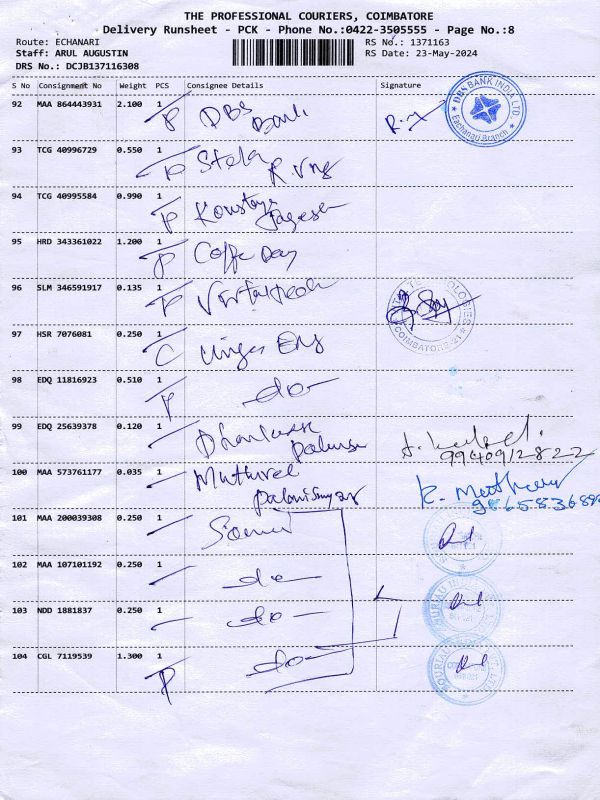 THE PROFESSIONAL COURIERS, COIMBATORE
Delivery Runsheet - PCK - Phone No.:0422-3505555 - Page No.:8
Route: ECHANARI RS No.: 1371163
Staff: ARUL AUGUSTIN RS Date: 23-May-2024
DRS No.: DCJB137116308
S No Consignment No Weight PCS Consignee Details Signature
92 MAA 864443931 2.100 1
P DBS
Bank
DBS BANK INDIA LTD.
Eachanari Branch
93 TCG 40996729 0.550 1
P
94 TCG 40995584 0.990 1
P
95 HRD 343361022 1.200 1
P Coffe Day
96 SLM 346591917 0.135 1
P
COIMBATORE-21
97 HSR 7076081 0.250 1
C Eng
98 EDQ 11816923 0.510 1
P -do-
99 EDQ 25639378 0.120 1
9940912822
100 MAA 573761177 0.035 1
Muthuvel
101 MAA 200039308 0.250 1
102 MAA 107101192 0.250 1
-do-
103 NDD 1881837 0.250 1
-do-
104 CGL 7119539 1.300 1
P -do-